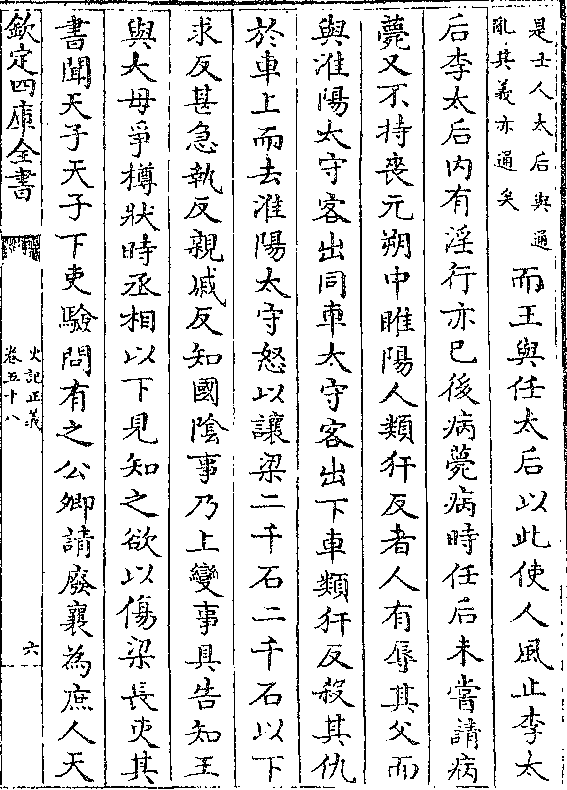 是士人太后與通
亂其義亦通矣
而王與任太后以此使人風止李太
后李太后内有淫行亦已後病薨病時任后未嘗請病
薨又不持喪元朔中睢陽人類犴反者人有辱其父而
與淮陽太守客出同車太守客出下車類犴反殺其仇
於車上而去淮陽太守怒以讓梁二千石二千石以下
求反甚急執反親戚反知國隂事乃上變事具告知王
與大母爭樽狀時丞相以下見知之欲以傷梁長吏其
書聞天子天子下吏驗問有之公卿請廢襄為庶人天
欽定四庫全書
史記正義
卷五十八
六